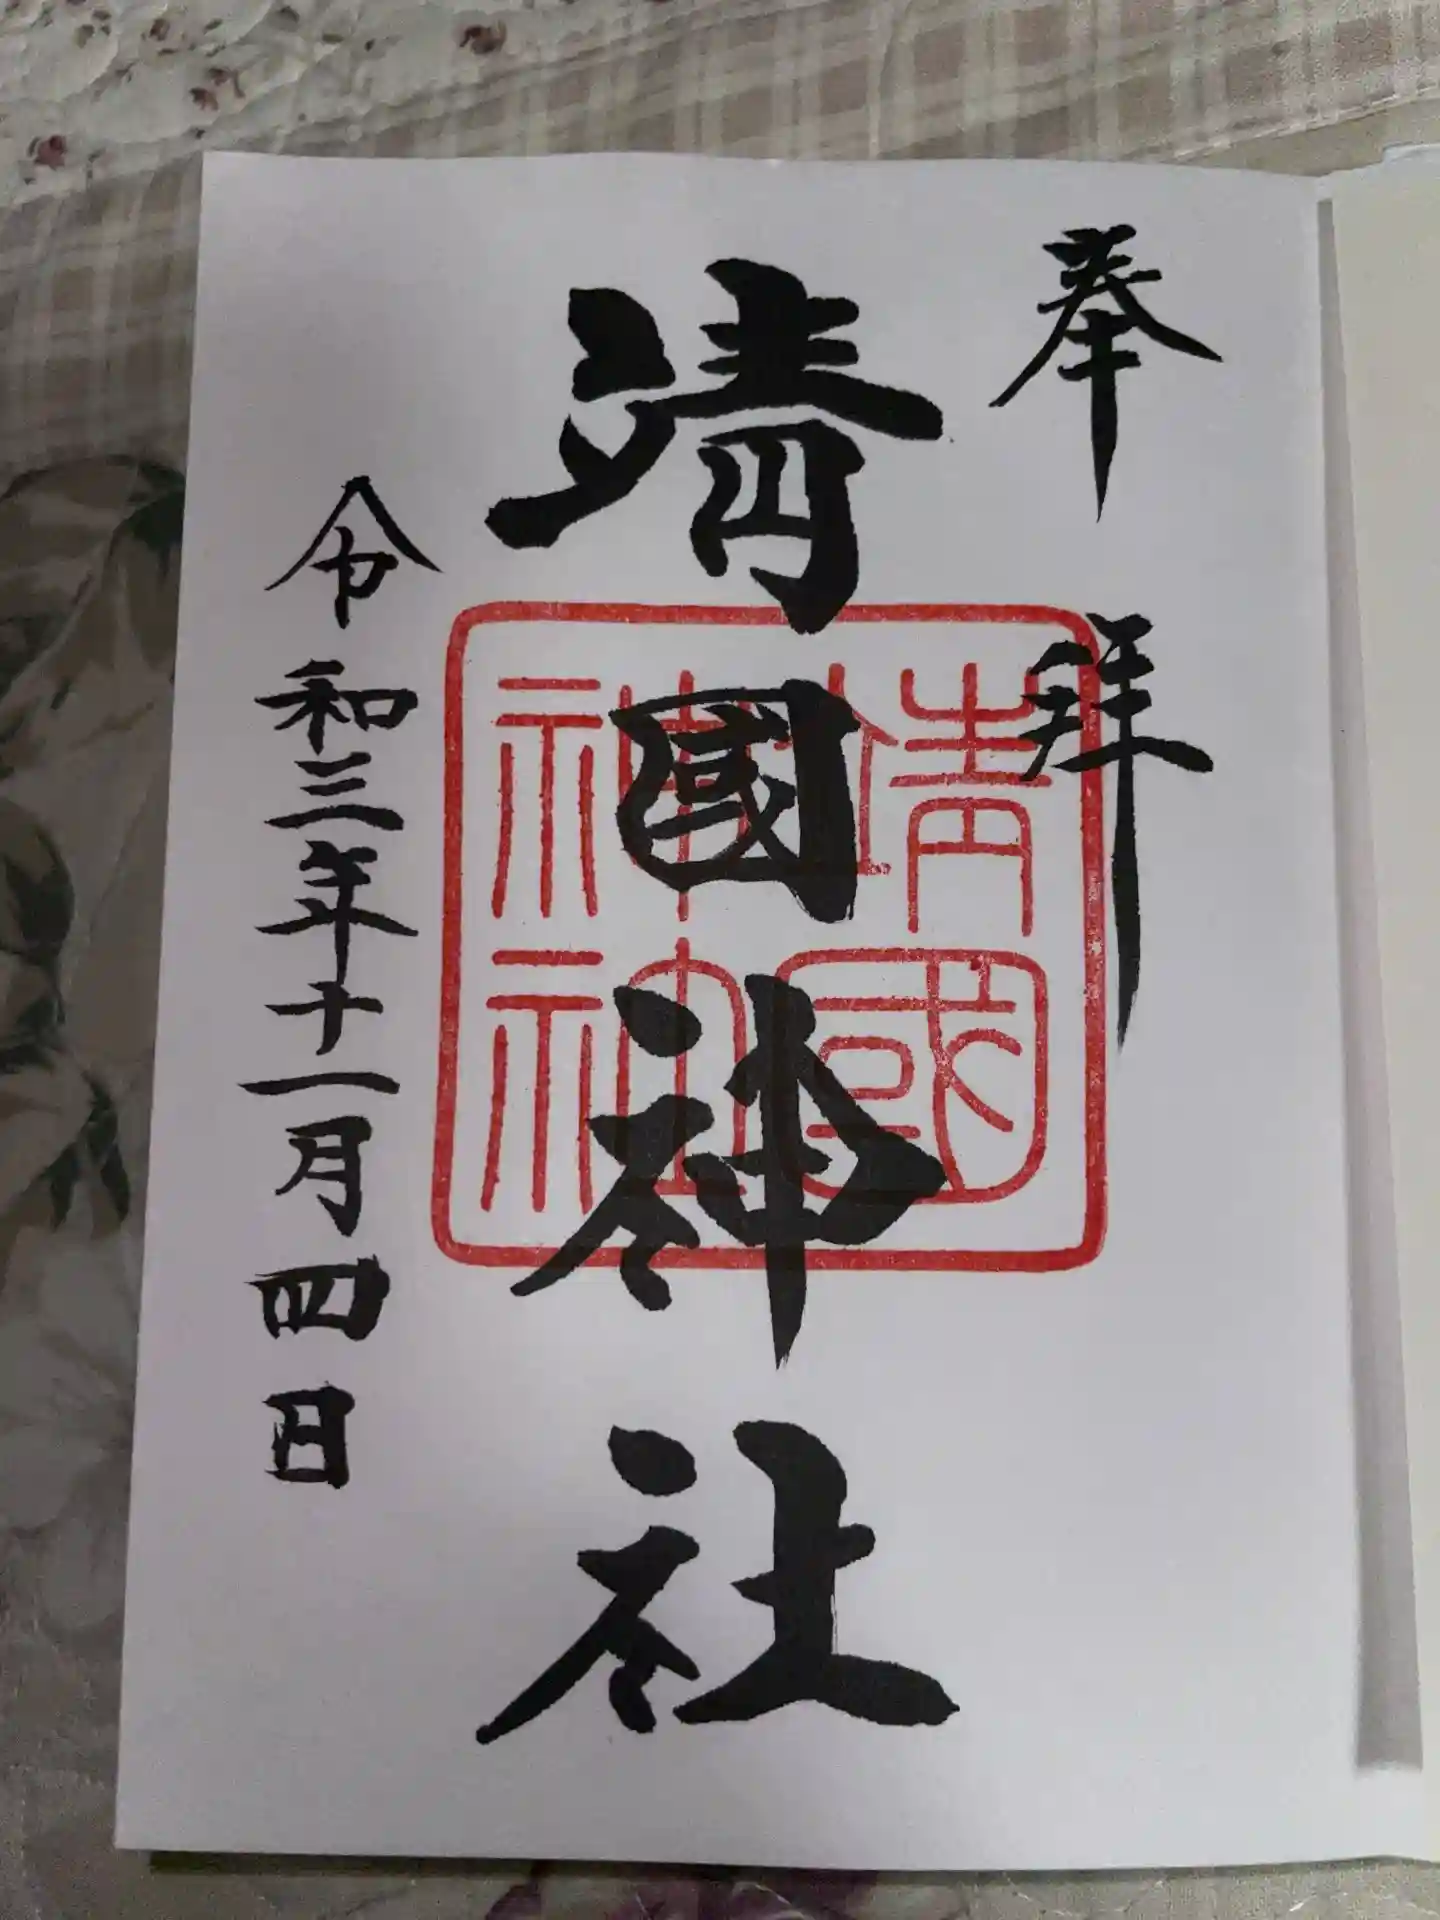 奉拝
靖國神社
靖國神社
令和三年十一月四日